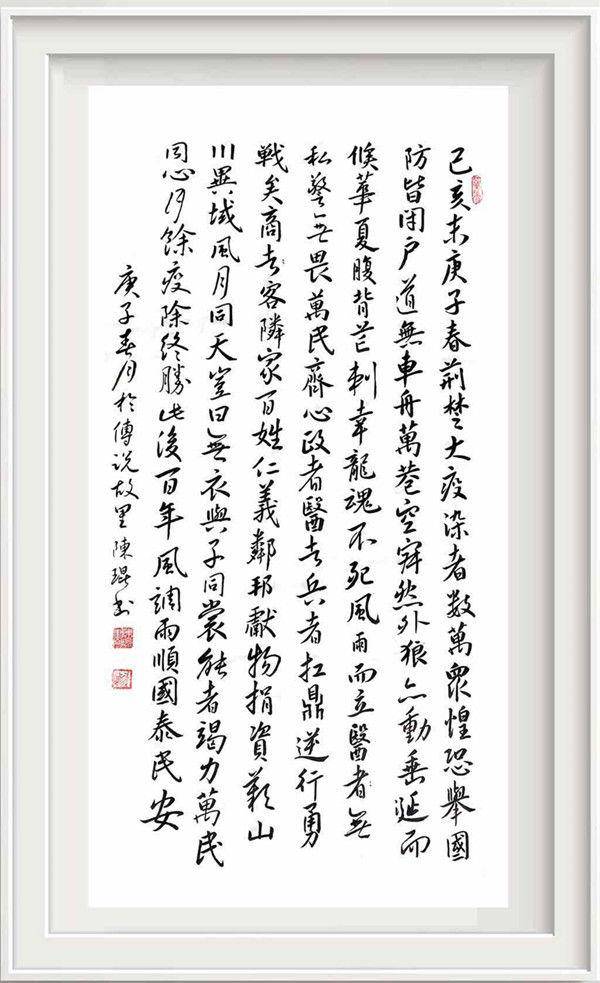 己亥末庚子春荊楚大疫染者數萬眾惶恐舉國
防皆閉戶道無車舟萬巷空寂然外狼亦動垂涎而
候華夏腹背芒刺幸龍魂不死風雨而立醫者無
私警無畏萬民齊心政者醫者兵者扛鼎逆行勇
戰矣商者客隣家百姓仁義鄰邦獻物捐資歎山
川異域風月同天豈曰無衣與子同裳能者竭力萬民
同心月餘疫除終勝此後百年風調雨順國泰民安
庚子春月於傅説故里陳琨書